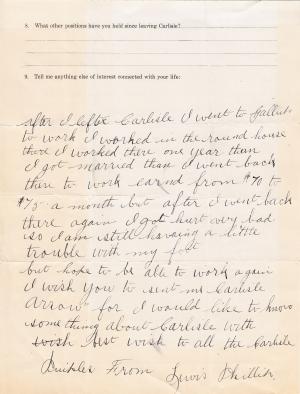 8. What other positions have you held since leaving Carlisle?
9. Tell me anything else of interest connected with your life:
after I lefte Carlisle I went to Gallup
to work I worked in the round house
there I worked there one year than
I got married than I went back
then to work earnd from $70 to
$75 a month but after I went back
there again I got hurt very bad
so I am still having a little
trouble with my feet
but hope to be able to work again
I wish you to sent me Carlisle
Arrow for I would like to know
something about Carlisle with
wish best wish to all the Carlisle
From Lewis Phillips